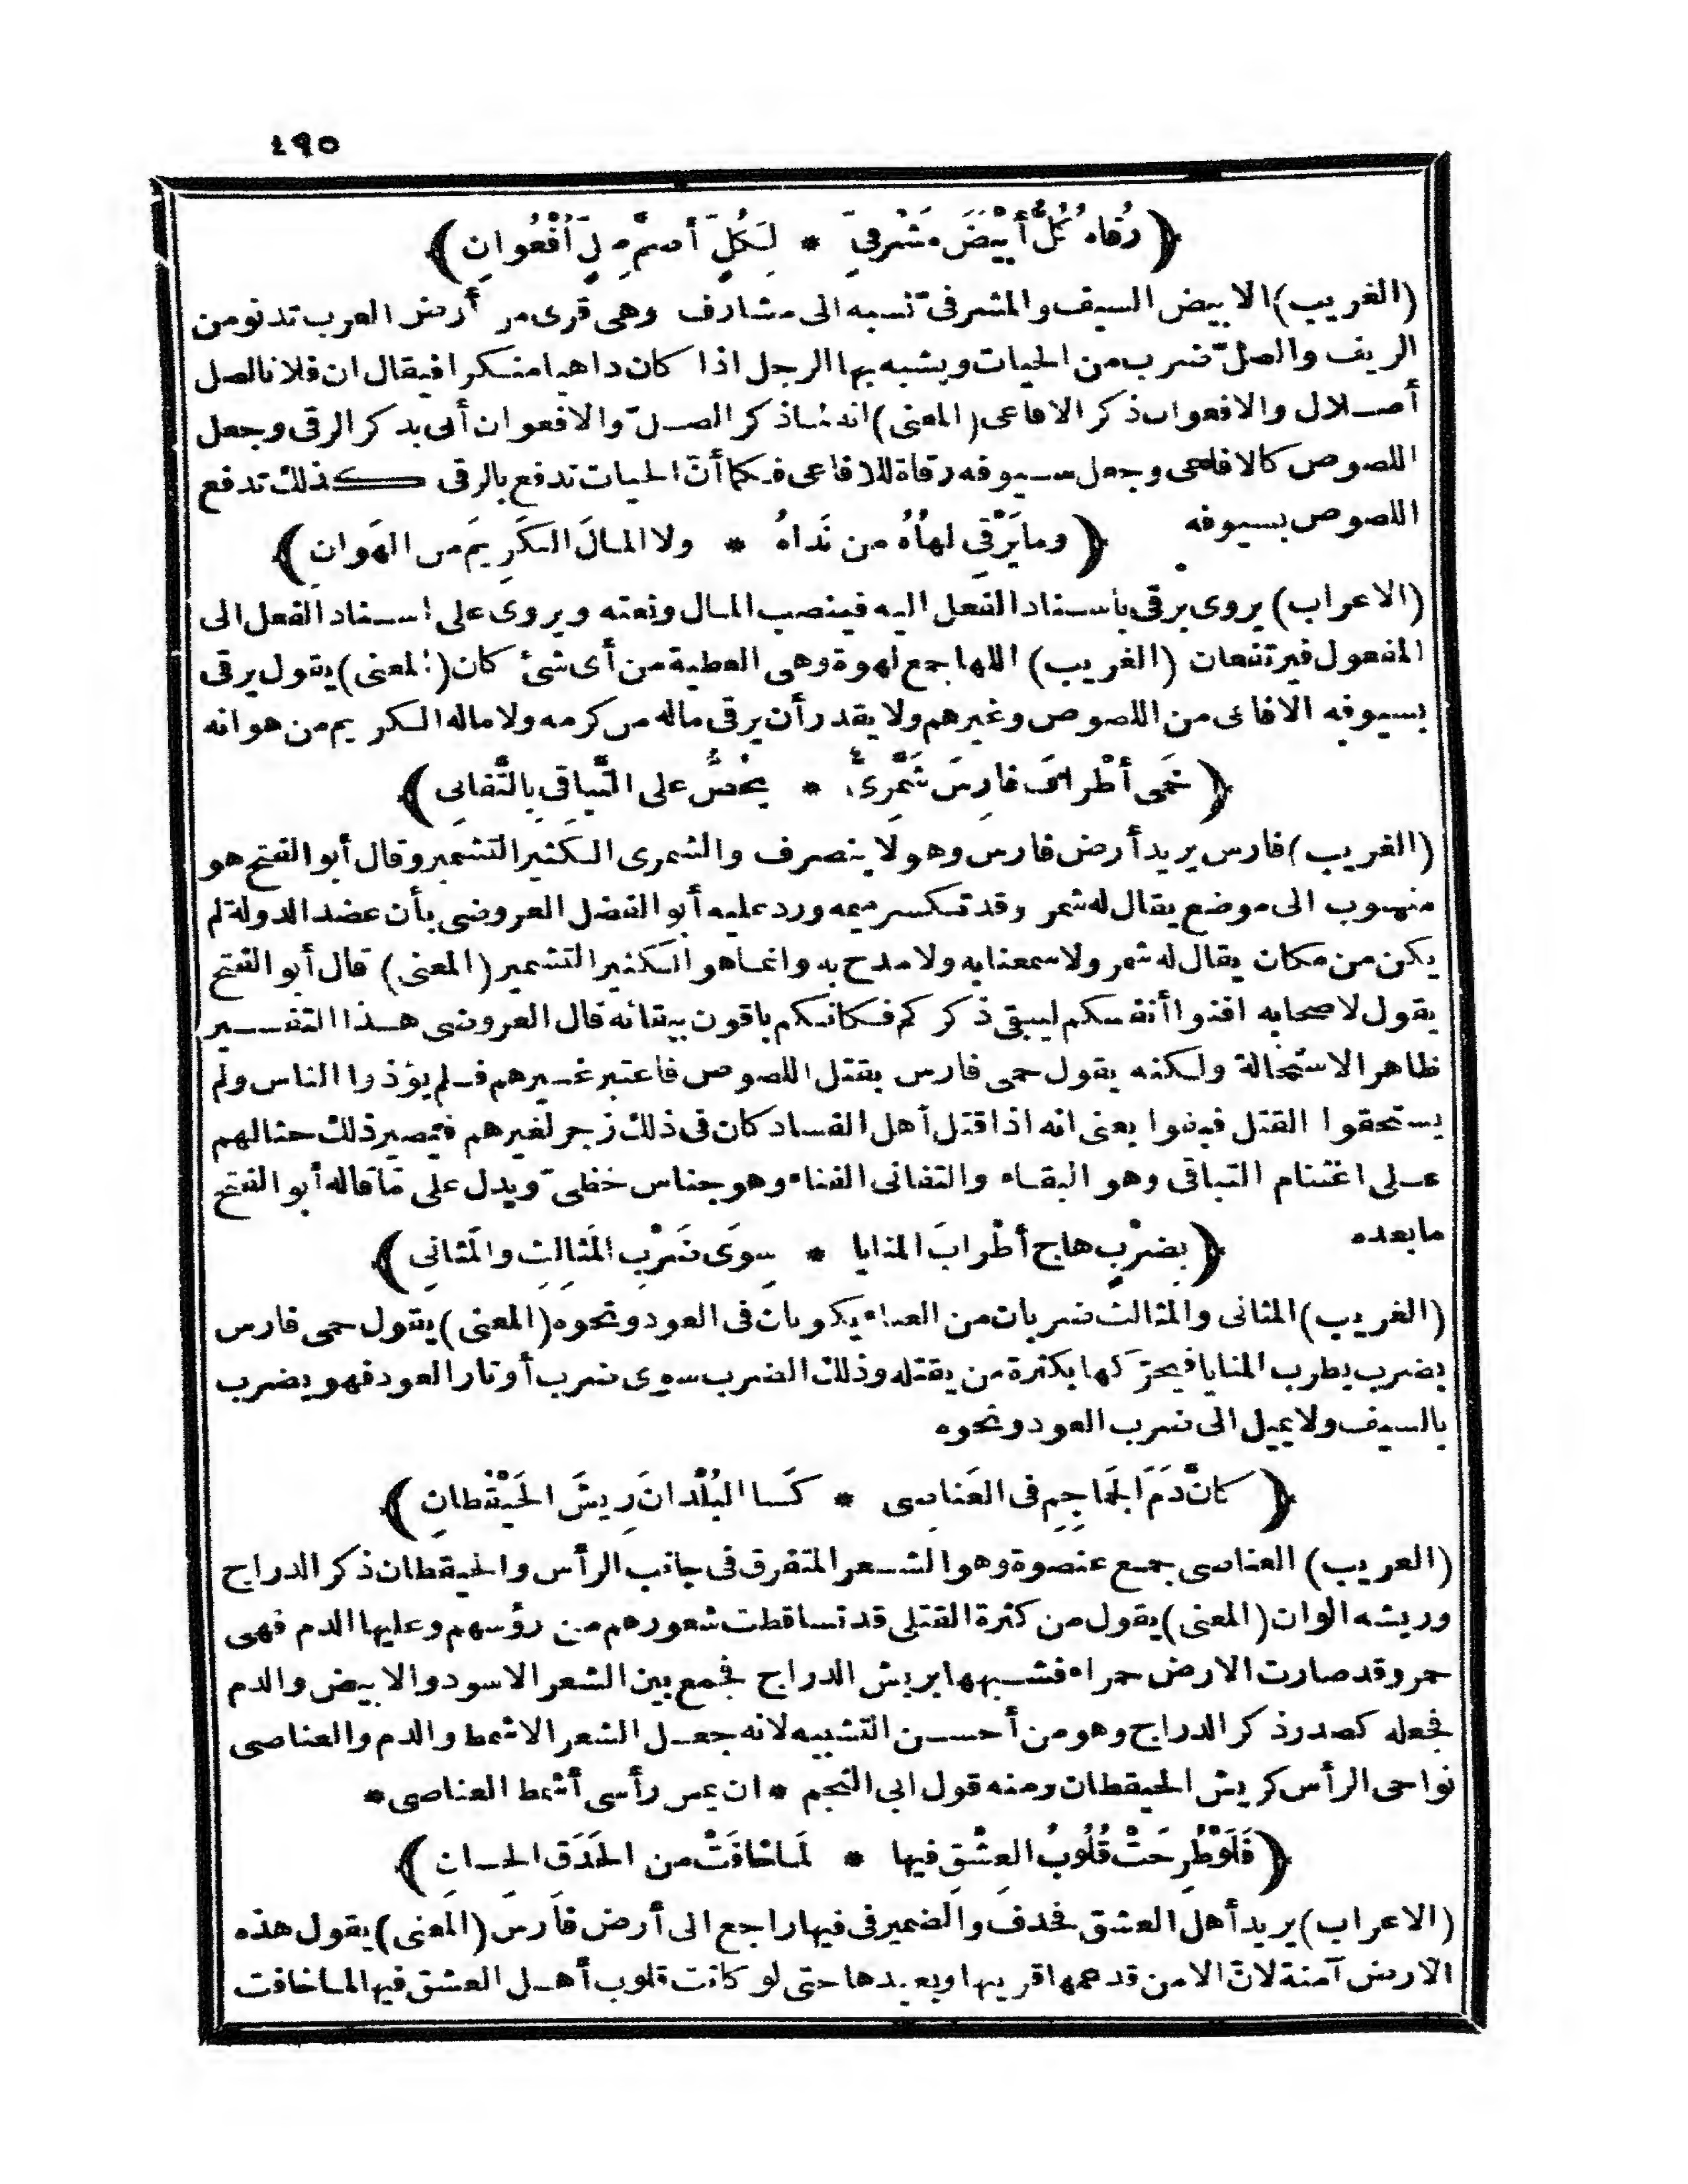 ٤٩٥
﴿رُقاهُ كُلُّ أَبْيَضَ مَشْرفيّ * لِكُلِّ أصمّ صِلٍّ أُفْعُوانِ﴾
(الغريب) الابيض السيف والمشرفىّ نسبه الى مشارف وهى قرى من أرض العرب تدنو من
الريف والصلّ ضرب من الحيات ويشبه بها الرجل اذا كان داهيا منكرا فيقال ان فلانا لصل
أصلال والافعوان ذكر الافاعى (المعنى) انه لما ذكر الصلّ والافعوان أتى بذكر الرقى وجعل
اللصوص كالافاعى وجعل سيوفه رقاة للافاعى فكما أنّ الحيات تدفع بالرقى كذلك تدفع
اللصوص بسيوفه ﴿وما يَرْقِى لهاهُ من نَداهُ * ولا المالَ الكَرِيمَ من الهَوانِ﴾
(الاعراب) يروى يرقى باسناد الفعل اليه فينصب المال ونعته ويروى على اسناد الفعل الى
المفعول فيرتفعان (الغريب) اللها جمع لهوة وهى العطية من أى شئ كان (المعنى) يقول يرقى
بسيوفه الافاعى من اللصوص وغيرهم ولا يقدر أن يرقى ماله من كرمه ولا ماله الكريم من هوانه
﴿حَمَى أطْرافَ فارِسَ شَمَّرِىٌّ * يَحُضُّ على التَّباقِى بِالتَّفانِى﴾
(الغريب) فارس يريد أرض فارس وهو لا ينصرف والشمرى الكثير التشمير وقال أبو الفتح هو
منسوب الى موضع يقال له شمر وقد تكسر ميمه ورد عليه أبو الفضل العروضى بأن عضد الدولة لم
يكن من مكان يقال له شمر ولا سمعنا به ولا مدح به وانما هو الكثير التشمير (المعنى) قال أبو الفتح
يقول لاصحابه افنوا أنفسكم ليبقى ذكركم فكانكم باقون ببقائه قال العروضى هذا التفسير
ظاهر الاستحالة ولكنه يقول حمى فارس بقتل اللصوص فاعتبر غيرهم فلم يؤذوا الناس ولم
يستحقوا القتل فيفنوا يعنى انه اذا قتل أهل الفساد كان فى ذلك زجر لغيرهم فيصير ذلك حثا لهم
على اغتنام التباقى وهو البقاء والتفانى الفناء وهو جناس خطىّ ويدل على ما قاله أبو الفتح
ما بعده ﴿بضَرْبٍ هاج أطْرابَ المنايا * سِوَى ضَرْبِ المَثالِثِ والمَثانِى﴾
(الغريب) المثانى والمثالث ضربان من الغناء يكونان فى العود ونحوه (المعنى) يقول حمى فارس
بضرب يطرب المنايا فيحرّكها بكثرة من يقتله وذلك الضرب سوى ضرب أوتار العود فهو يضرب
بالسيف ولا يميل الى ضرب العود ونحوه
﴿كانَّ دَمَ الجَماجِمِ فى العَناصِى * كَسا البُلْدانَ رِيشَ الحَيْقُطانِ﴾
(الغريب) العناصى جمع عنصوة وهو الشعر المتفرق فى جانب الرأس والحيقطان ذكر الدراج
وريشه الوان (المعنى) يقول من كثرة القتلى قد تساقطت شعورهم من رؤسهم وعليها الدم فهى
حمر وقد صارت الارض حمراء فشبهها بريش الدراج فجمع بين الشعر الاسود والابيض والدم
فجعله كصدر ذكر الدراج وهو من أحسن التشبيه لانه جعل الشعر الاشمط والدم والعناصى
نواحى الرأس كريش الحيقطان ومنه قول ابى النجم * ان يمس رأسى أشمط العناصى *
﴿فَلَوْ طُرِحَتْ قُلُوبُ العِشْقِ فيها * لَما خافَتْ من الحَدَقِ الحِسانِ﴾
(الاعراب) يريد أهل العشق فحذف والضمير فى فيها راجع الى أرض فارس (المعنى) يقول هذه
الارض آمنة لانّ الامن قد عمها قريبها وبعيدها حتى لو كانت قلوب أهل العشق فيها لما خافت